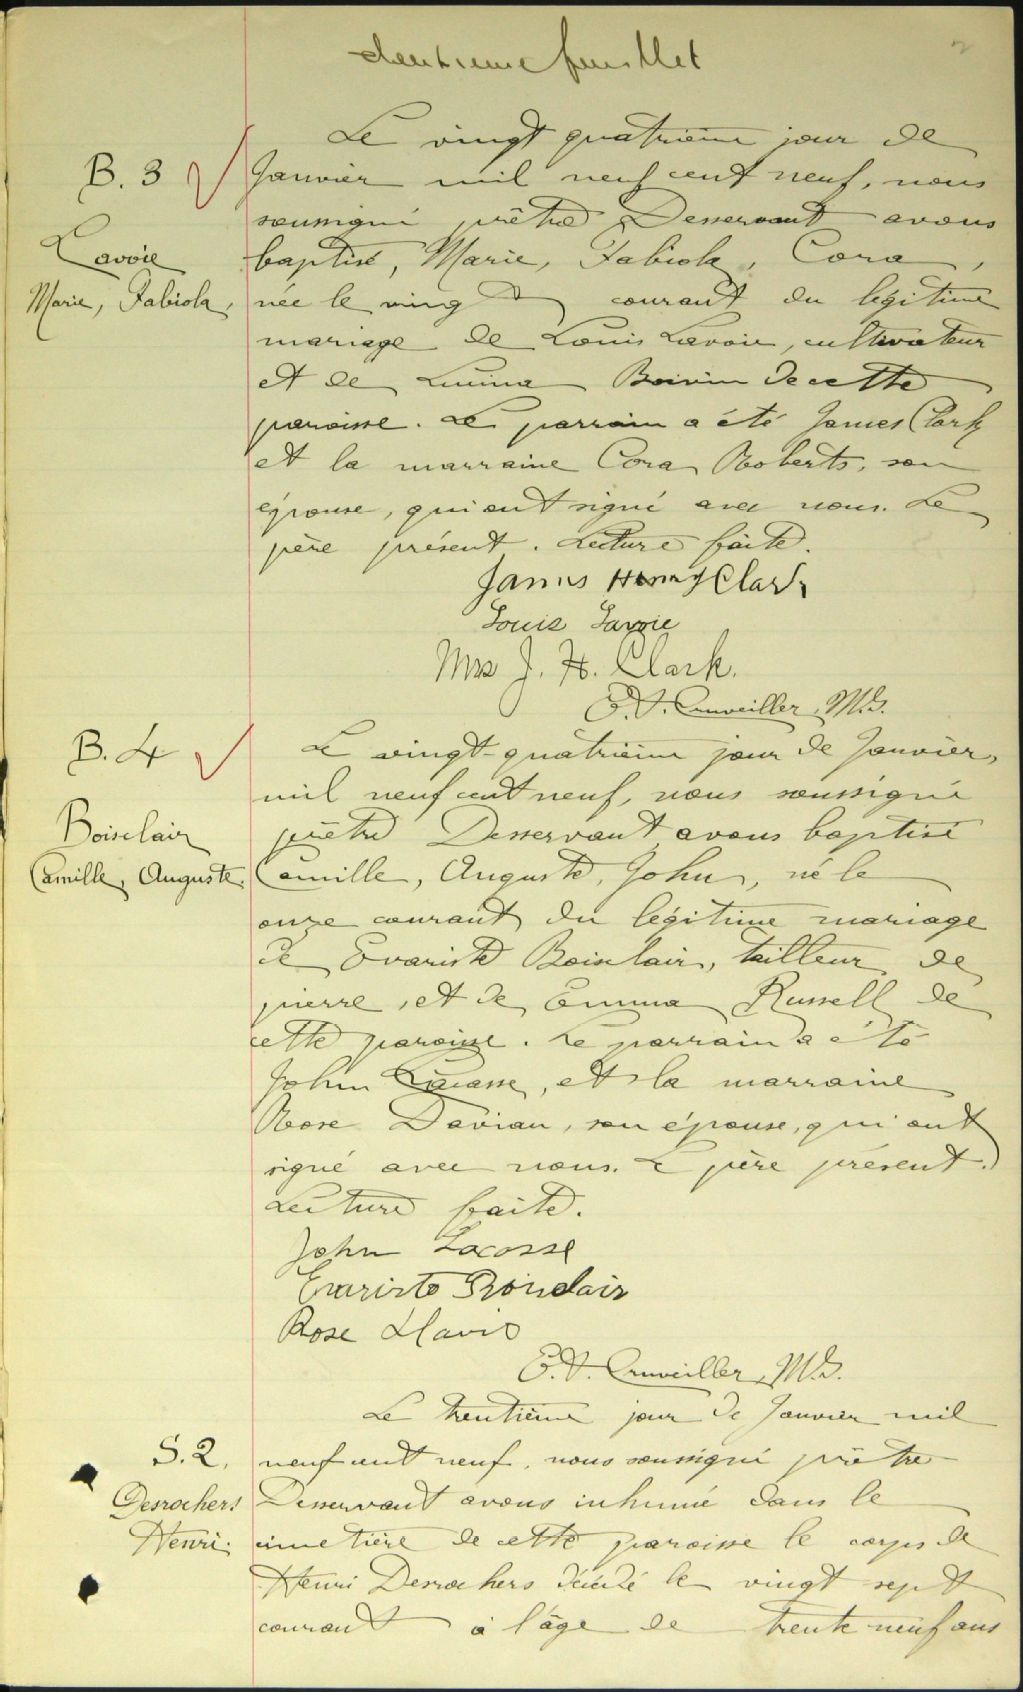 deuxieme feuillet
2
B. 3
Lavoie
Marie, Fabiola,
Le vingt quatrième jour de
Janvier mil neuf cent neuf, nous
soussigné prêtre Desservant avons
baptisé, Marie, Fabiola, Cora,
née le vingt courant du légitime
mariage de Louis Lavoie, cultivateur
et de Boivin de cette
paroisse. Le parrain a été James Clark
et la marraine Cora Roberts, son
épouse, qui ont signé avec nous. Le
père présent. Lecture faite.
James Henry Clark
Louis Lavoie
Mrs J. H. Clark.
E. V. Cruveiller, M.S.
B. 4
Boisclair
Camille, Auguste.
Le vingt-quatrième jour de Janvier,
mil neuf cent neuf, nous soussigné
prêtre Desservant avons baptisé
Camille, Auguste, John, né le
onze courant du légitime mariage
de Evariste Boisclair, tailleur de
pierre, et de Emma Russell de
cette paroisse. Le parrain a été
John Lacasse, et la marraine
Rose Daviau, son épouse, qui ont
signé avec nous. Le père présent.
Lecture faite.
John Lacasse
Evariste Boisclair
Rose
E. V. Cruveiller, M.S.
S. 2.
Desrochers
Henri.
Le trentième jour de Janvier mil
neuf cent neuf, nous soussigné prêtre
Desservant avons inhumé dans le
cimetière de cette paroisse le corps de
Henri Desrochers décédé le vingt sept
courant à l'âge de trente neuf ans